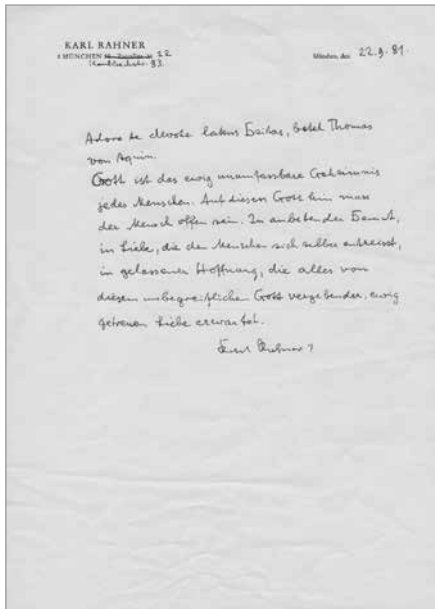 KARL RAHNER
8 MÜNCHEN 22
Kaulbachstr. 33
München, den 22.9.81.
Adoro te devote latens Deitas, betet Thomas
von Aquin.
Gott ist das ewig unumfassbare Geheimnis
jedes Menschen. Auf diesen Gott hin muss
der Mensch offen sein. In anbetender Demut,
in Liebe, die den Menschen sich selber entreisst,
in gelassener Hoffnung, die alles von
diesem unbegreiflichen Gott vergebender, ewig
getreuen Liebe erwartet.
Karl Rahner